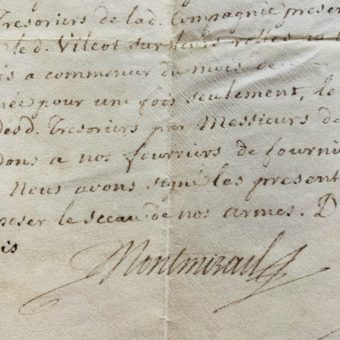 Tresoriers de lad. Compagnie presen
le d. Vilcot sur leurs rolles
s a commencer du mois de
née pour une fois seulement, le
desd. Tresoriers par Messieurs de
dons a nos fourriers de fourni
Nous avons signé les present
poser le sceau de nos armes. D
is
Montmirail